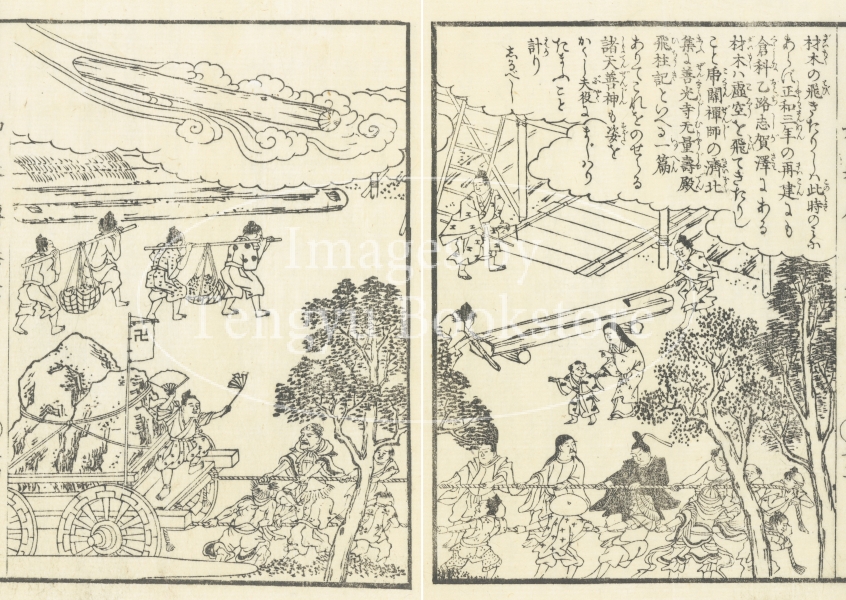 材木の飛きたりしハ此時のミふ
あらバ正和三年の再建にも
倉科乙路志賀澤にある
材木ハ虚空を飛てきたりし
こと虎關禪師の濟北
集に善光寺无量壽殿
飛柱記といへる一篇
ありてこれをのせらる
諸天善神も姿を
かくし夫役にまじハり
たまふこと
計り
しるべし
卍
Images by
Tengyu Bookstore